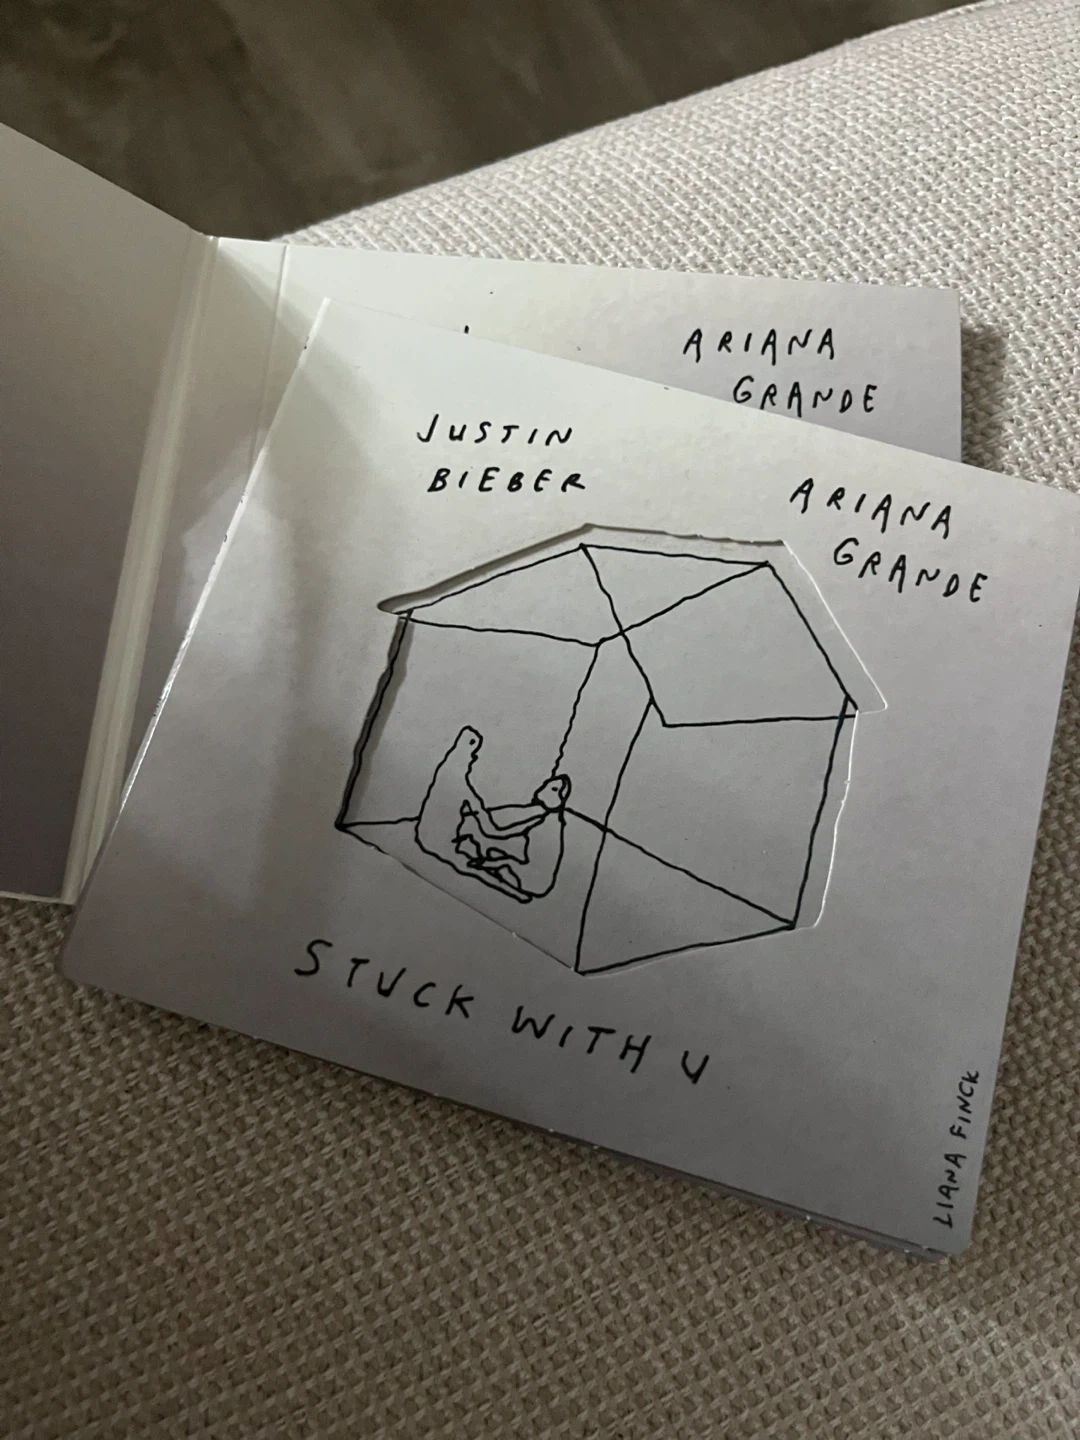 ARIANA
GRANDE
JUSTIN
BIEBER
ARIANA
GRANDE
STUCK WITH U
LIANA FINCK